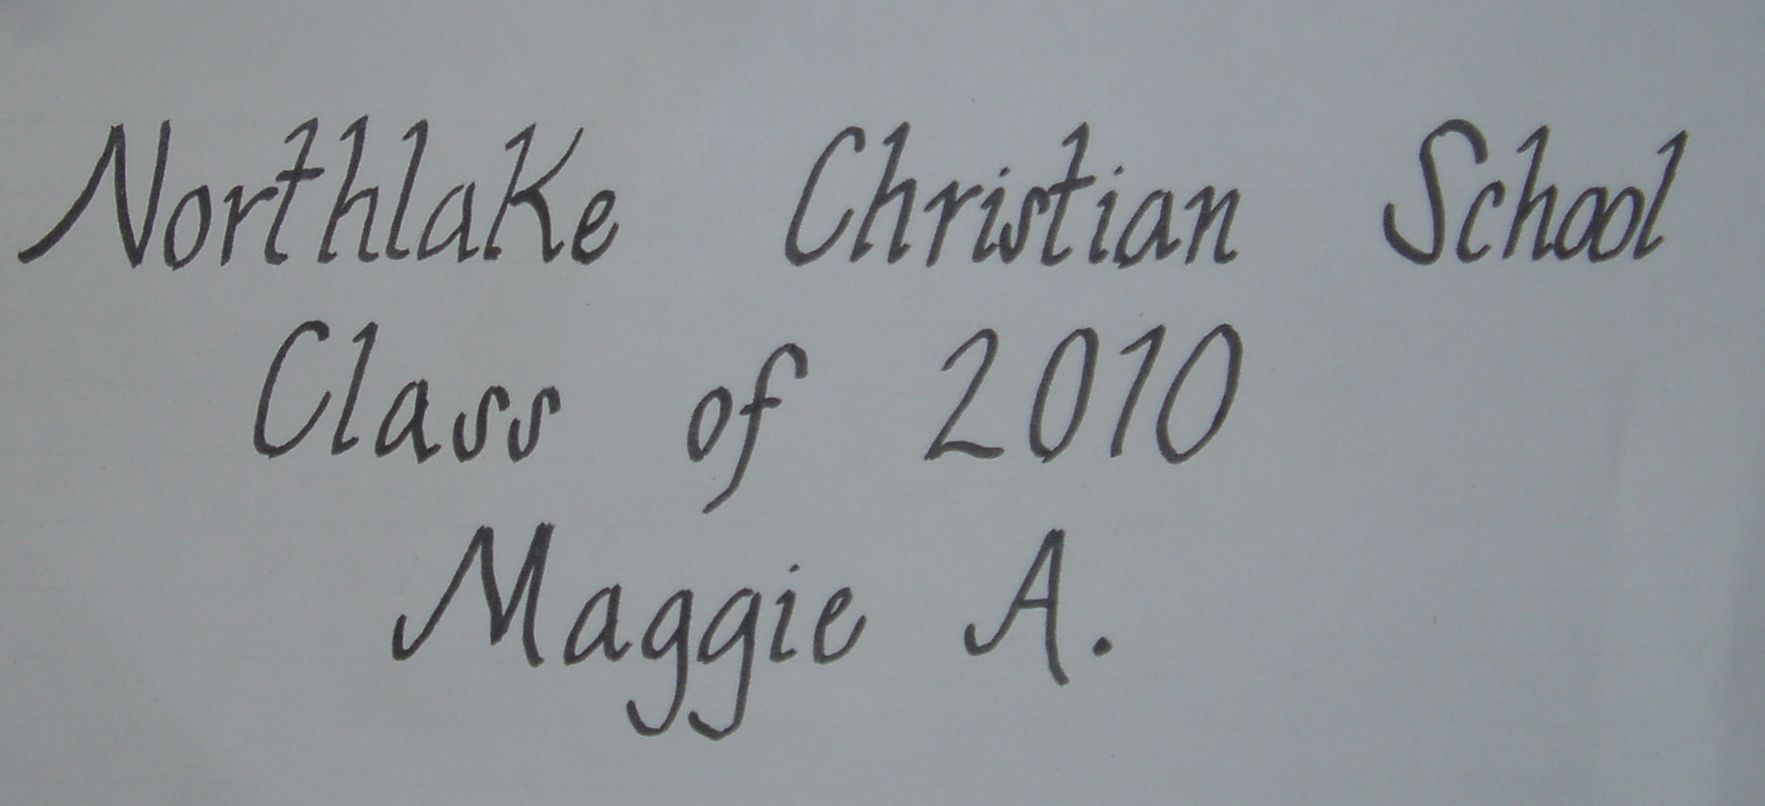 Northlake Christian School
Class of 2010
Maggie A.